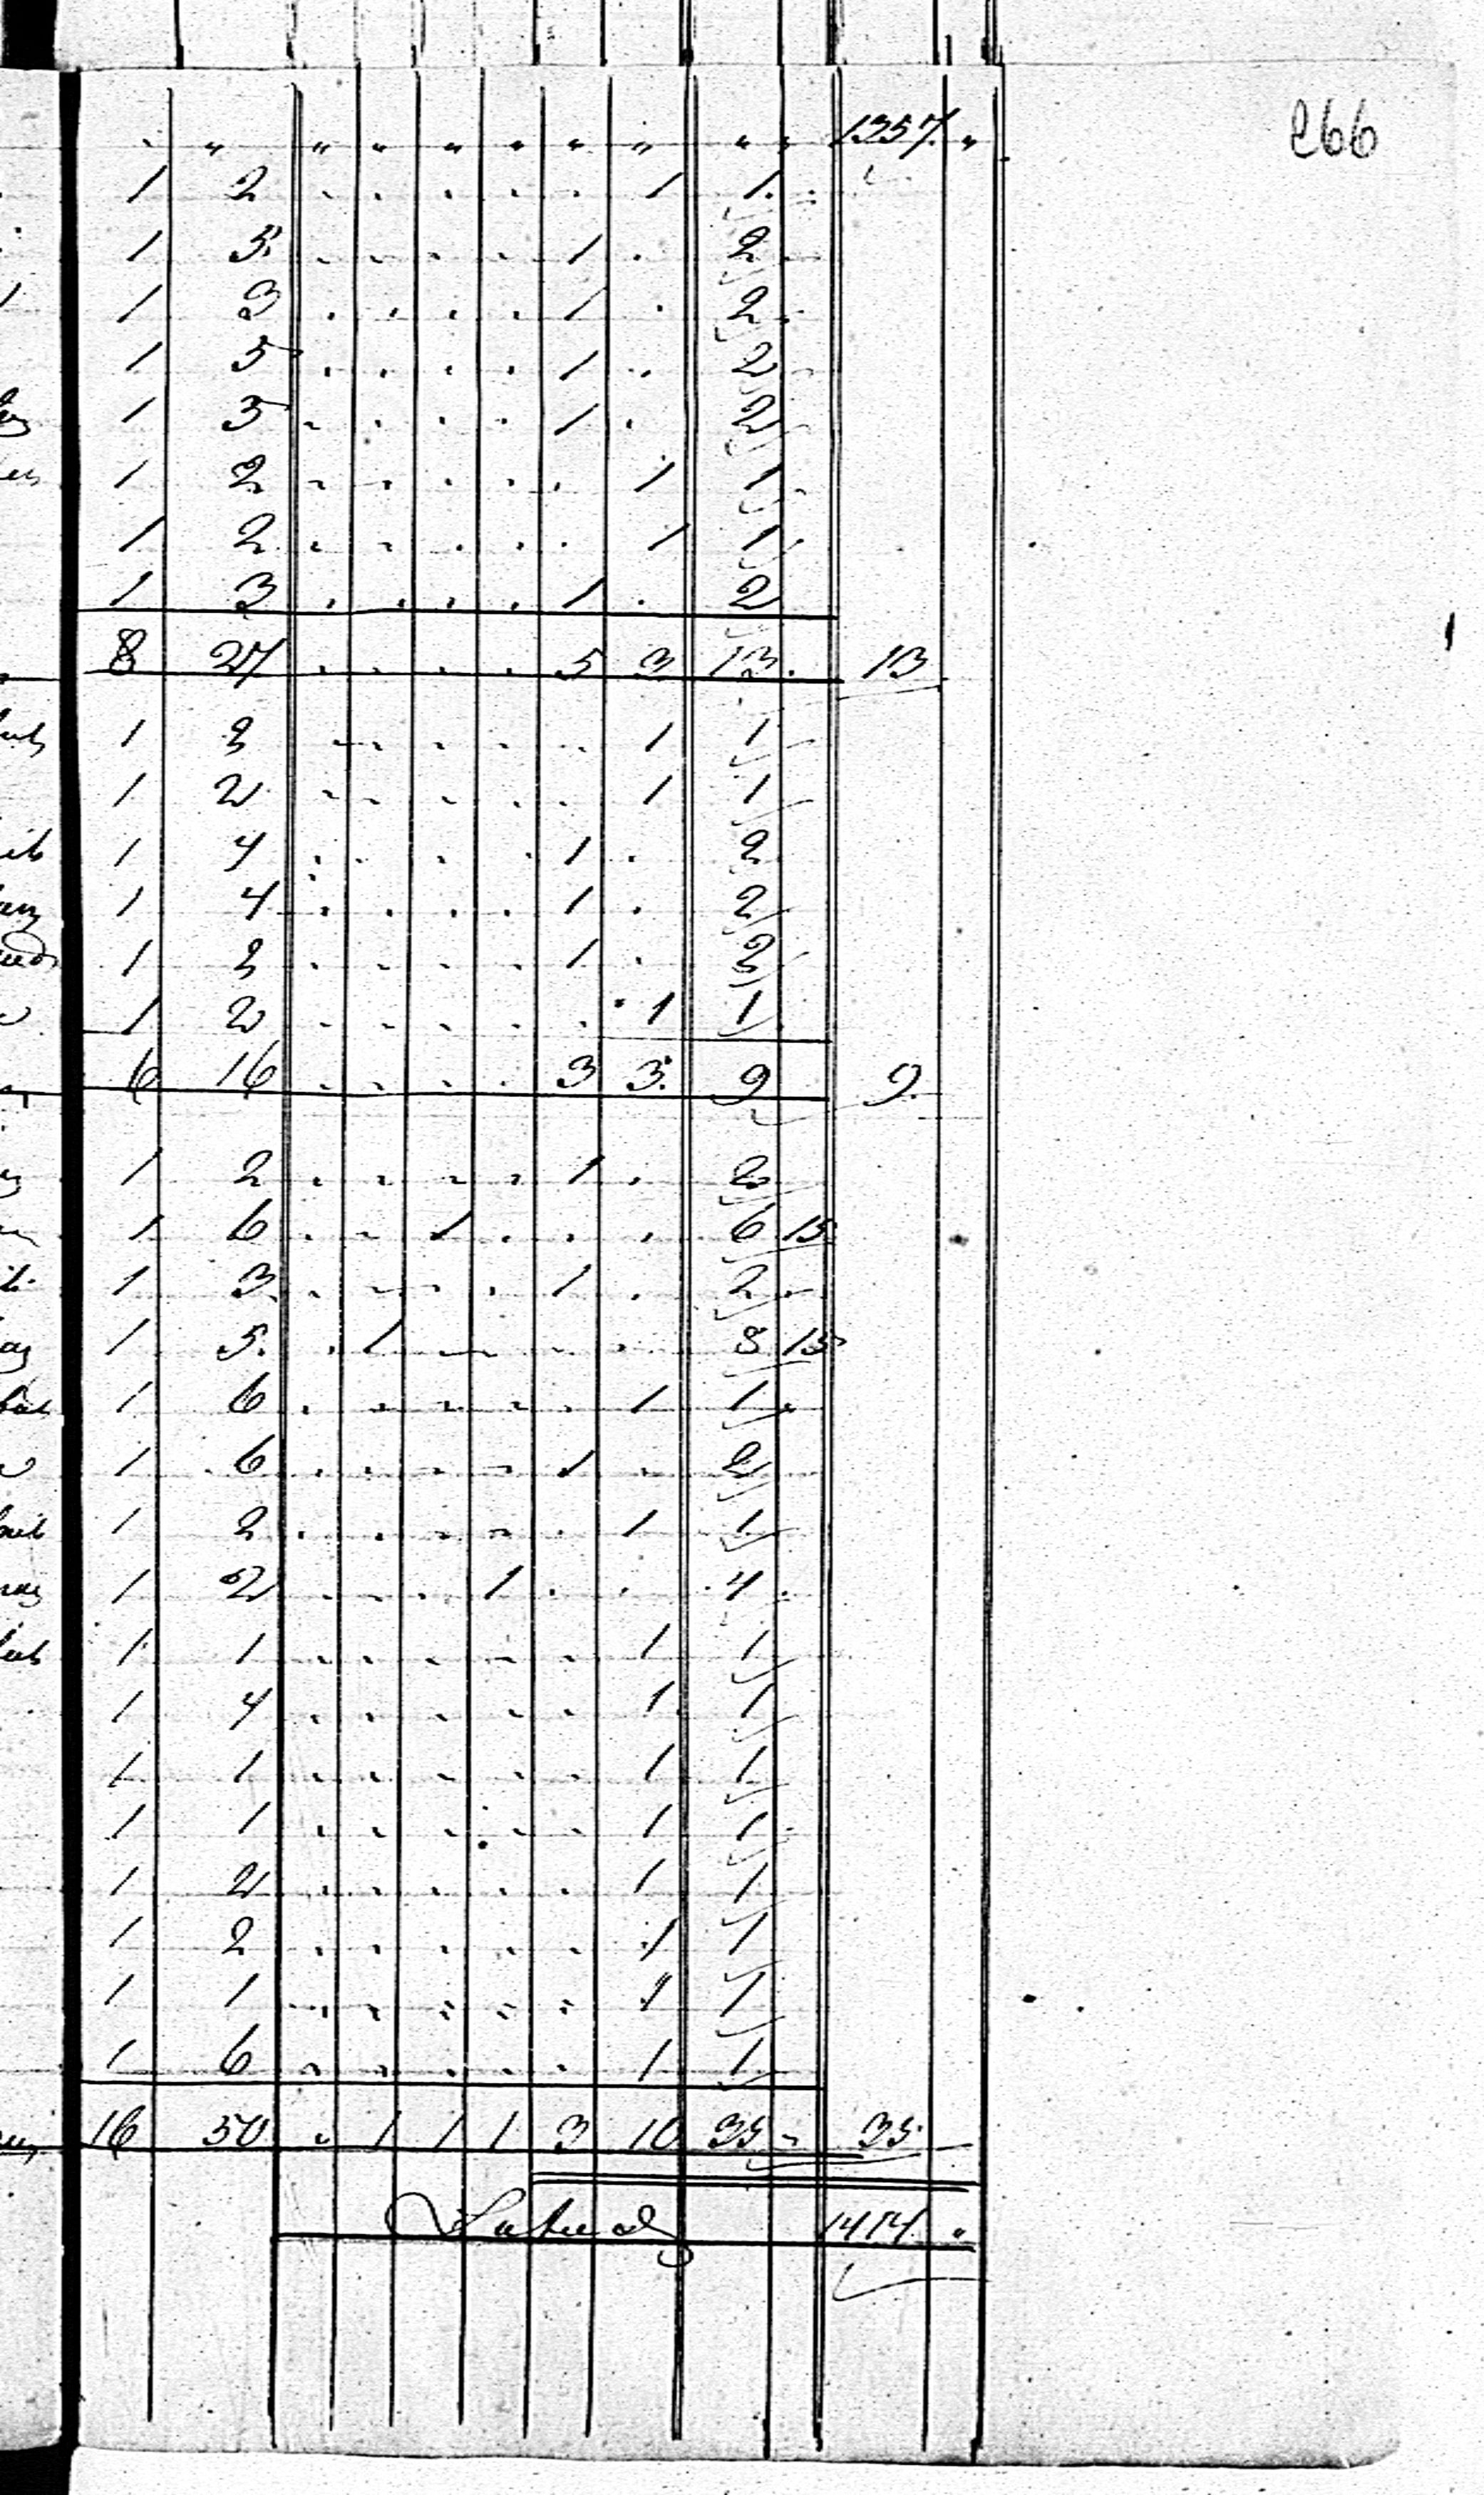 266
" " " " " " " " " " 1357. "
1 2 . . . . . 1 1.
1 5. . . . . 1 . 2
1 3 . . . . 1 . 2.
1 5 . . . . 1 . 2
1 5 . . . . 1 . 2
1 2 . . . . . 1 1
1 2 . . . . . 1 1
1 3 . . . . 1 . 2
8 27 . . . . 5 3 13. 13
1 . . . . . 1 1
1 2 . . . . . 1 1
1 4 . . . . 1 . 2
1 4 . . . . 1 . 2
1 . . . . 1 . 2
1 2 . . . . . 1 1
6 16 . . . . 3 3. 9 9.
1 2 . . . . 1 . 2
1 6 . . 1 . . . 6 15
1 3 . . . . 1 . 2
1 5. . 1 . . . . 8 15
1 6 . . . . . 1 1
1 6 . . . . 1 . 2
1 2 . . . . . 1 1
1 2 . . . 1 . . 4
1 1 . . . . . 1 1
1 4 . . . . . 1 1
1 1 . . . . . 1 1
1 1 . . . . . 1 1
1 2 . . . . . 1 1
1 2 . . . . . 1 1
1 1 . . . . . 1 1
1 6 . . . . . 1 1
16 50 . 1 1 1 3 10 35 - 35
1414. "